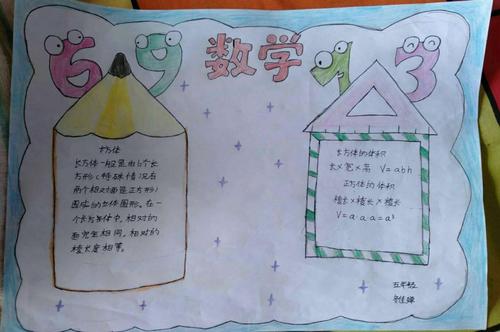 6 9 数学 1 3
长方体
长方体一般是由6个长
方形(特殊情况有
两个相对面是正方形)
围成的立体图形。在一
个长方体中,相对的
面完全相同,相对的
棱长度相等。
长方体的体积
长×宽×高 V=abh
正方体的体积
棱长×棱长×棱长
V=a·a·a=a³
五年级